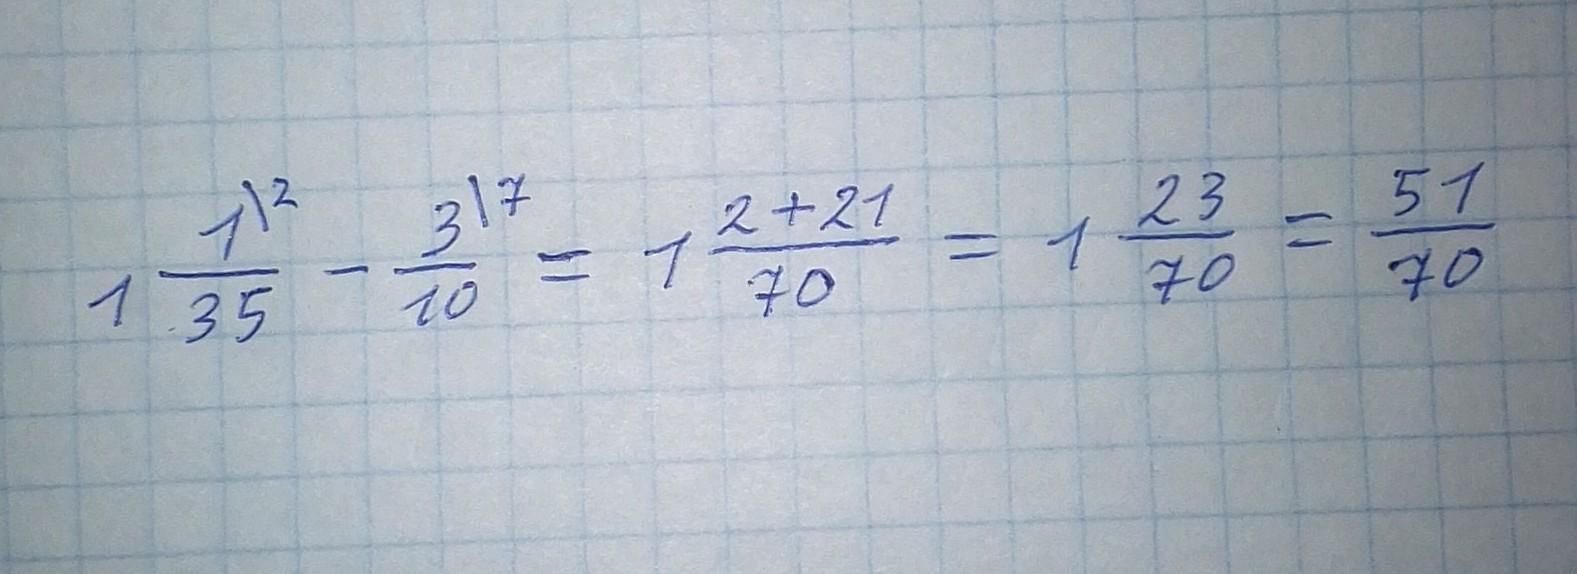 1 1\2/35 - 3\7/10 = 1 2+21/70 = 1 23/70 = 51/70